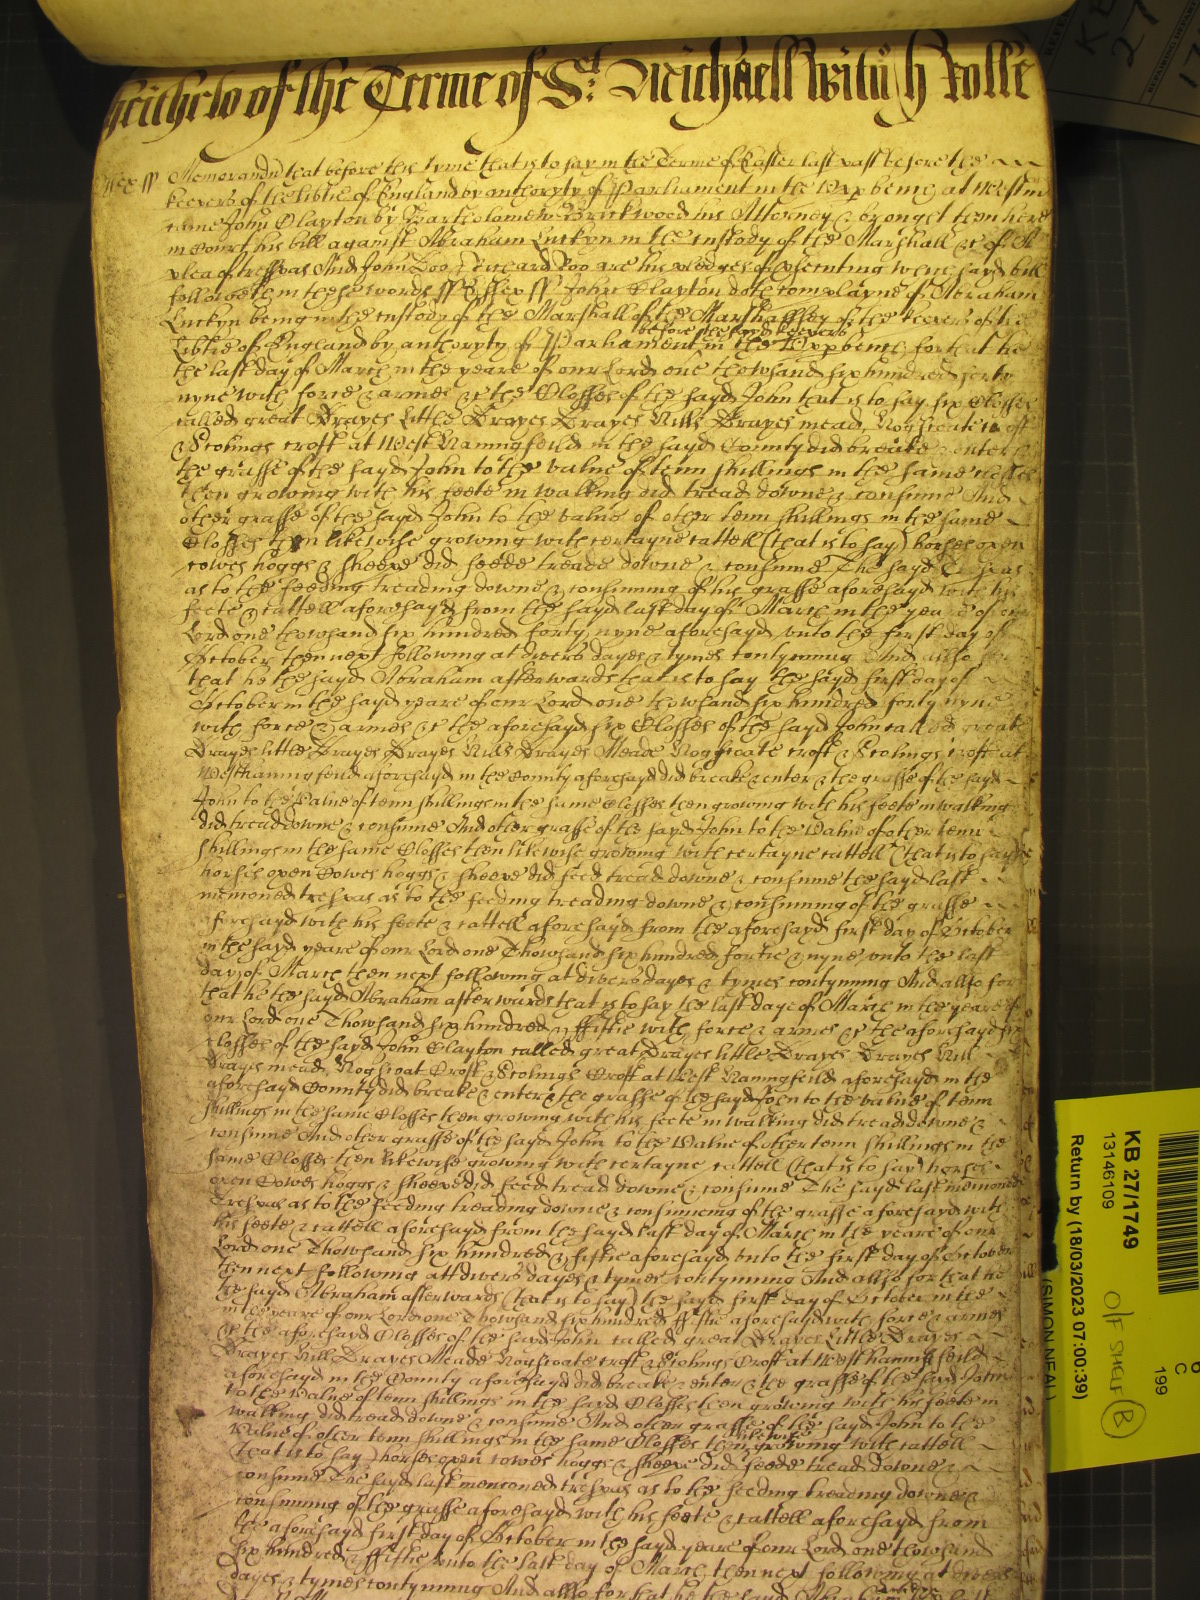 of the Terme of St Michaell with Rolle
ss Memorand that before this tyme that is to say in the Terme of Easter last past before the
keepers of the libtie of England by authoryty of Parliament in the Upp bench at Westm
came John Clayton by Bartholomew Brickwood his Attorney & brought then here
in Court his bill against Abraham Luckyn in the custody of the Marshall &c of A
plea of trespas And John Doo & Richard Roo are his pledges of psecuting which sayd bill
followeth in these words ss Essex ss John Clayton doth complayne of Abraham
Luckyn being in the custody of the Marshall of the Marshallsey of the keepers of the
before the sayd keepers
Libtie of England by authoryty of Parliament in the Upp bench for that he
the last day of March in the yeare of our Lord one thowsand six hundred forty
nyne with force & armes &c the Closses of the sayd John that is to say six Closses
called great Drayes Little Drayes Drayes Hills Drayes mead, croft
& croft at West Hanningfeild in the sayd County did breake & enter &
the grasse of the sayd John to the value of tenn shillings in the same closses
then growing with his feete in walking did tread downe & consume And
other grasse of the sayd John to the value of other tenn shillings in the same
Closses then likewise growing with certayne cattell (that is to say) horses oxen
cowes hoggs & sheepe did feede treade downe & consume The sayd trespas
as to the feeding treading downe & consuming of his grasse aforesayd with his
feete & cattell aforesayd from the sayd last day of March in the yeare of our
Lord one thowsand six hundred forty nyne aforesayd unto the first day of
October then next following at divers dayes & tymes contynuing And allso
that he the sayd Abraham afterwards that is to say the sayd first day of
October in the sayd yeare of our Lord one thowsand six hundred forty nyne
with force & armes &c the aforesayd six Closses of the sayd John called great
Drayes little Drayes Drayes Hills Drayes Meade croft & croft at
Westhanningfeild aforesayd in the County aforesayd did breake & enter & the grasse of the sayd
John to the Value of tenn shillings in the same Closses then growing with his feete in walking
did tread downe & consume And other grasse of the sayd John to the Value of other tenn
shillings in the same Closses then likewise growing with certayne cattell (that is to say)
horses oxen Cowes hoggs & sheepe did feed tread downe & consume the sayd last
menconed trespas as to the feeding treading downe & consuming of the grasse
aforesayd with his feete & cattell aforesayd from the aforesayd first day of October
in the sayd yeare of our Lord one Thowsand six hundred fortie & nyne unto the last
day of March then next following at divers dayes & tymes contynuing And allso for
that he the sayd Abraham afterwards that is to say the last daye of March in the yeare of
our Lord one Thowsand six hundred & fiftie with force & armes &c the aforesayd six
closses of the sayd John Clayton called great Drayes little Drayes Drayes Hill
Drayes mead, Croft & Croft at West Hanningfeild aforesayd in the
aforesayd County did breake & enter & the grasse of the sayd John to the value of tenn
shillings in the same Closses then growing with his feete in walking did tread downe &
consume And other grasse of the sayd John to the Value of other tenn shillings in the
same Closses then likewise growing with certayne cattell (that is to say) horses
oxen Cowes hoggs & sheepe did feed tread downe & consume The sayd last menconed
Trespas as to the feeding treading downe & consuming of the grasse aforesayd with
his feete & cattell aforesayd from the sayd last day of March in the yeare of our
Lord one Thowsand six hundred & fiftie aforesayd unto the first day of October
then next following att divers dayes & tymes contynuing And allso for that he
the sayd Abraham afterwards (that is to say) the sayd first day of October in the
in the yeare of our Lord one Thowsand six hundred fiftie aforesayd with force & armes
&c the aforesayd Closses of the sayd John called great Drayes Little Drayes
Drayes Hill Drayes Meade croft & Croft at West hanningfeild
aforesayd in the County aforesayd did breake & enter & the grasse of the sayd John
to the Value of tenn shillings in the sayd Closses then growing with his feete in
walking did tread downe & consume And other grasse of the sayd John to the
likewise
Value of other tenn shillings in the same Closses then growing with cattell
(that is to say) horses oxen cowes hoggs & sheepe did feede tread downe &
consume The sayd last menconed trespas as to the feeding treading downe &
consuming of the grasse aforesayd with his feete & cattell aforesayd from
the aforesayd first day of October in the sayd yeare of our Lord one thowsand
six hundred & fiftie unto the last day of March then next following at divers
dayes & tymes contynuing And allso for that he the sayd Abraham
KB 27/1749
13146109
Return by (18/03/2023 07:00:39)
(SIMON NEAL)
O/F SHELF B
C
199